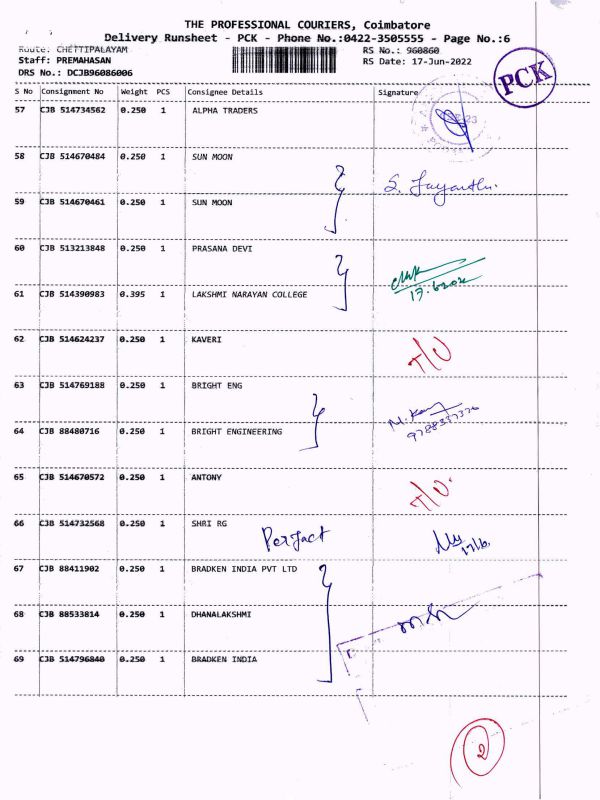 THE PROFESSIONAL COURIERS, Coimbatore
Delivery Runsheet - PCK - Phone No.:0422-3505555 - Page No.:6
Route: CHETTIPALAYAM RS No.: 960860
Staff: PREMAHASAN RS Date: 17-Jun-2022
DRS No.: DCJB96086006
PCK
S No Consignment No Weight PCS Consignee Details Signature
57 CJB 514734562 0.250 1 ALPHA TRADERS
58 CJB 514670484 0.250 1 SUN MOON
S. Jayanthi.
59 CJB 514670461 0.250 1 SUN MOON
60 CJB 513213848 0.250 1 PRASANA DEVI
61 CJB 514390983 0.395 1 LAKSHMI NARAYAN COLLEGE
62 CJB 514624237 0.250 1 KAVERI T/U
63 CJB 514769188 0.250 1 BRIGHT ENG
64 CJB 88480716 0.250 1 BRIGHT ENGINEERING
65 CJB 514670572 0.250 1 ANTONY T/U.
66 CJB 514732568 0.250 1 SHRI RG
Perfact 17/6
67 CJB 88411902 0.250 1 BRADKEN INDIA PVT LTD
68 CJB 88533814 0.250 1 DHANALAKSHMI
69 CJB 514796840 0.250 1 BRADKEN INDIA
2